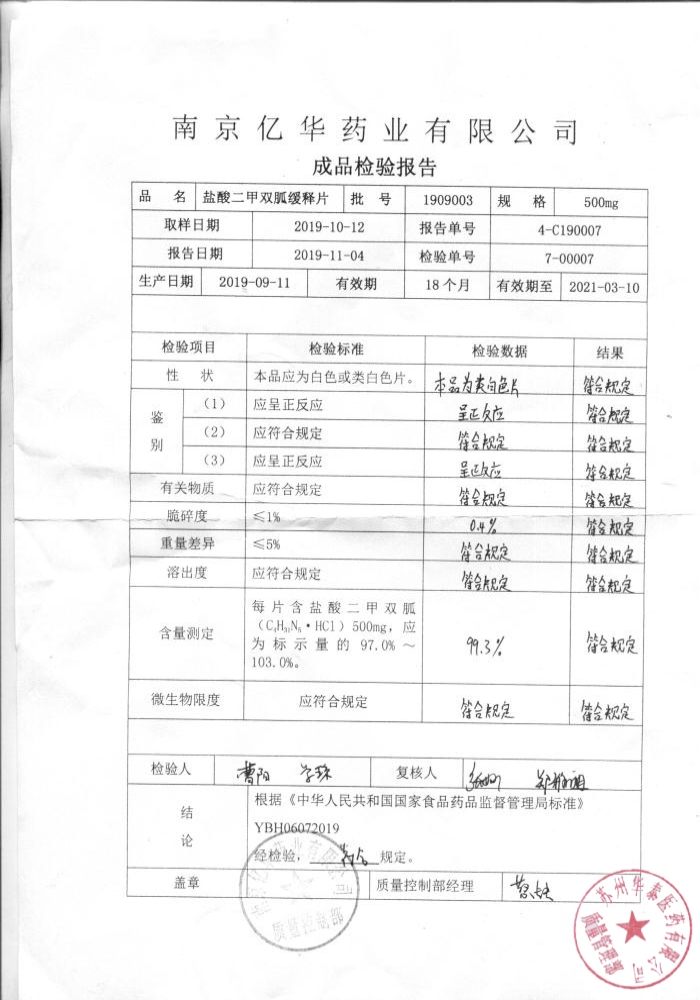 南京亿华药业有限公司
成品检验报告
品 名 盐酸二甲双胍缓释片 批 号 1909003 规 格 500mg
取样日期 2019-10-12 报告单号 4-C190007
报告日期 2019-11-04 检验单号 7-00007
生产日期 2019-09-11 有效期 18个月 有效期至 2021-03-10
检验项目 检验标准 检验数据 结果
性 状 本品应为白色或类白色片。 本品为类白色片 符合规定
鉴别
（1） 应呈正反应 呈正反应 符合规定
（2） 应符合规定 符合规定 符合规定
（3） 应呈正反应 呈正反应 符合规定
有关物质 应符合规定 符合规定 符合规定
脆碎度 ≤1% 0.4% 符合规定
重量差异 ≤5% 符合规定 符合规定
溶出度 应符合规定 符合规定 符合规定
含量测定 99.3% 符合规定
每片含盐酸二甲双胍
（C₄H₁₁N₅·HCl）500mg，应
为标示量的 97.0%～
103.0%。
微生物限度 应符合规定 符合规定 符合规定
检验人 曹阳 复核人
结论
根据《中华人民共和国国家食品药品监督管理局标准》
YBH06072019
经检验， 符合 规定。
盖章 质量控制部经理
南京亿华药业有限公司
质量控制部
苏州华泰医药有限公司
质量管理部